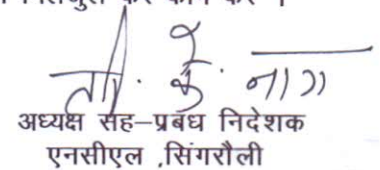 ता. कु. नाग
अध्यक्ष सह–प्रबंध निदेशक
एनसीएल ,सिंगरौली